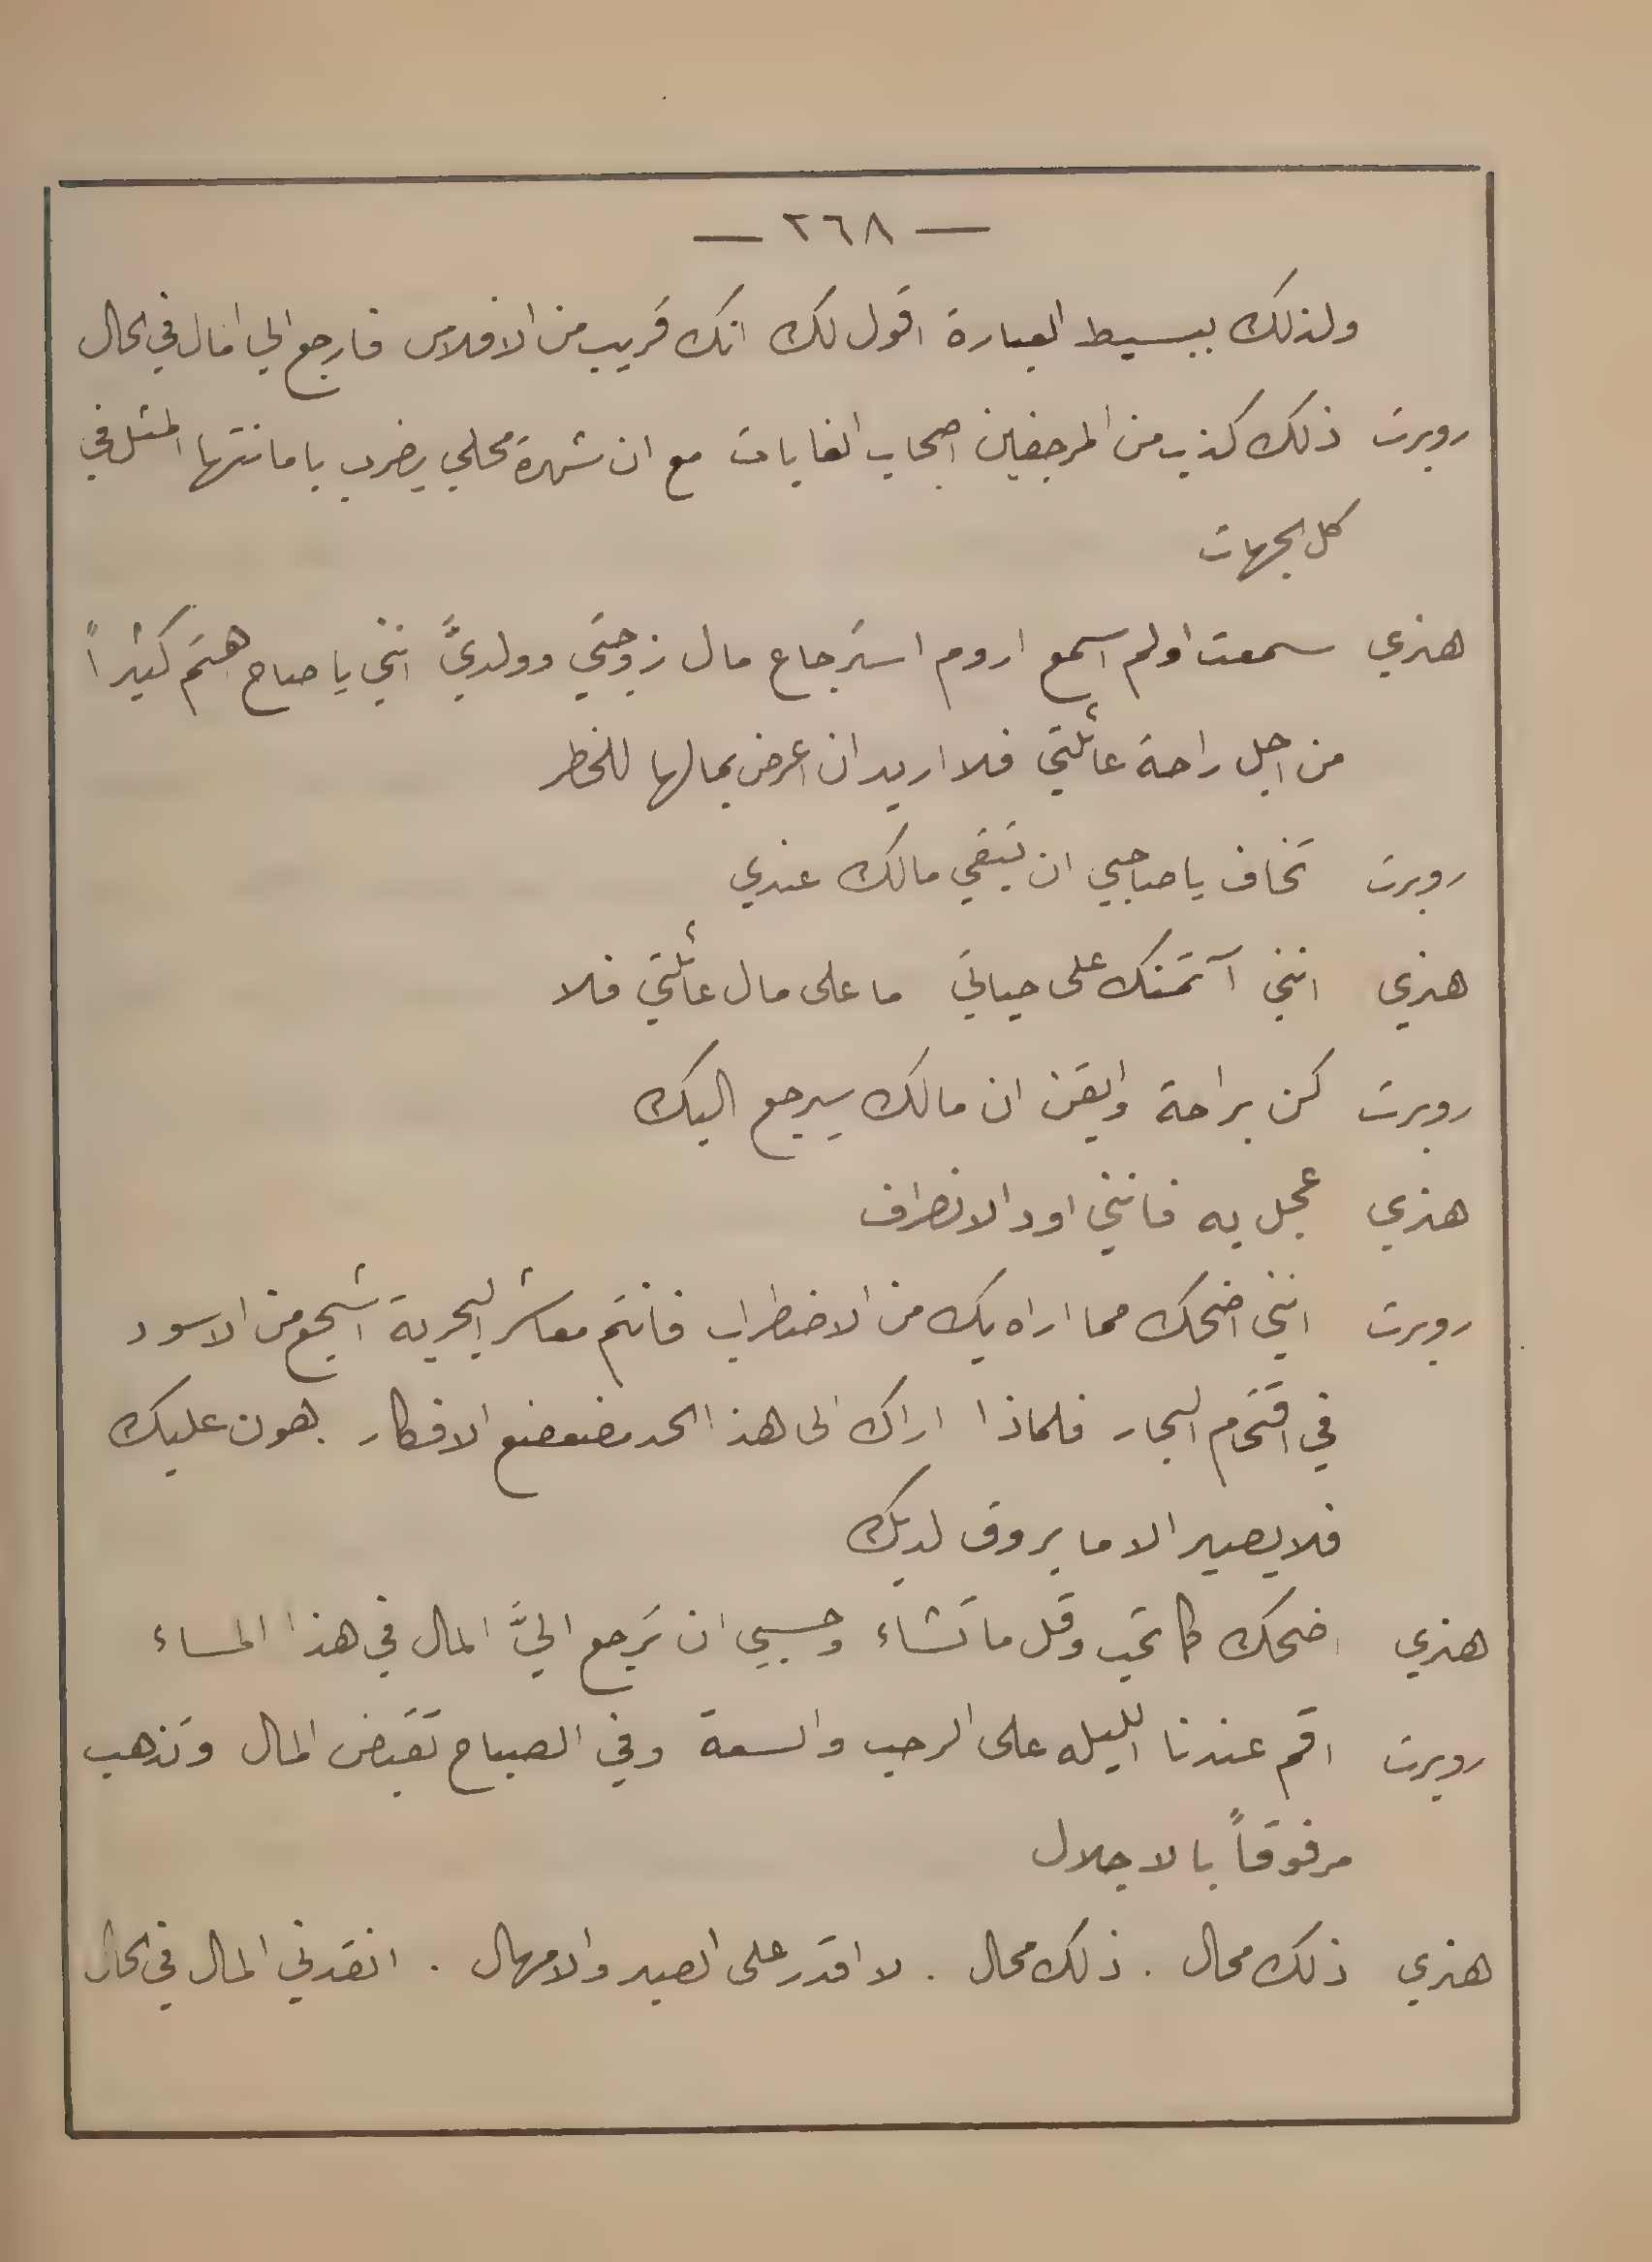 — ٢٦٨ —
ولذلك ببسيط العبارة اقول لك انك قريب من الافلاس فارجع الي امال في الحال
روبرت ذلك كذب من المرجفين اصحاب الغايات مع ان شهرة محلي يضرب بامانتها المثل في
كل الجهات
هنري سمعت اولم اسمع اروم استرجاع مال زوجتي وولديَّ انني يا صاح اهتم كثيراً
من اجل راحة عائلتي فلا اريد ان اعرض بمالها للخطر
روبرت تخاف يا صاحبي ان يبقي مالك عندي
هنري انني آتمنك على حياتي اما على مال عائلتي فلا
روبرت كن براحة وايقن ان مالك سيرجع اليك
هنري عجل به فانني اود الانصراف
روبرت انني اضحك مما اراه بك من الاضطراب فانتم معاشر البحرية اشجع من الاسود
في اقتحام البحار فلماذا اراك الى هذا الحد مضعضع الافكار هون عليك
فلا يصير الا ما يروق لديك
هنري اضحك كما تحب وقل ما تشاء وحسبي ان يرجع اليَّ المال في هذا المساء
روبرت اقم عندنا الليله على الرحب والسعة وفي الصباح تقبض المال وتذهب
مرفوقاً بالاجلال
هنري ذلك محال . ذلك محال . لا اقدر على الصبر والامهال . انقدني المال في الحال